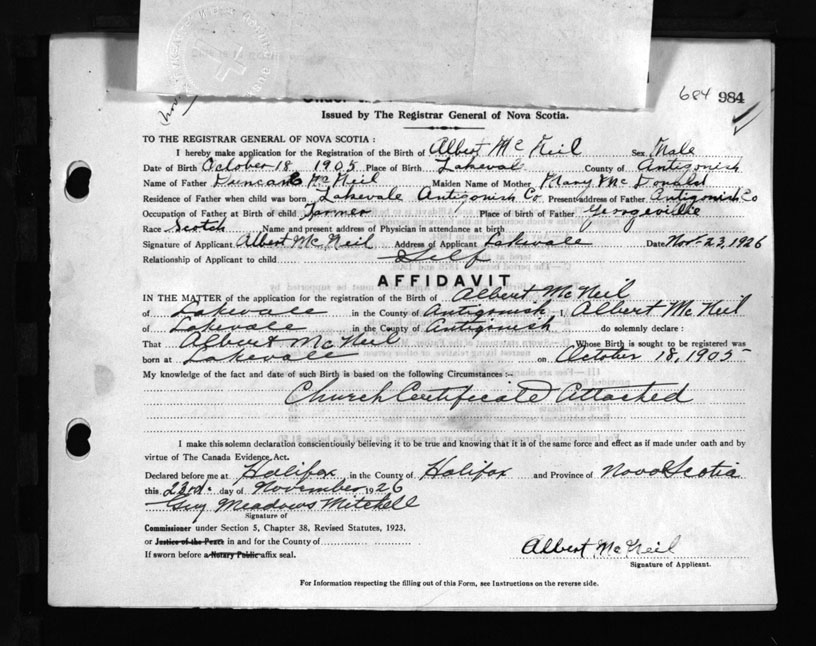 684 984
Issued by The Registrar General of Nova Scotia.
TO THE REGISTRAR GENERAL OF NOVA SCOTIA :
I hereby make application for the Registration of the Birth of Albert Mc Neil Sex Male
Date of Birth October 18 1905 Place of Birth Lakeval County of Antigonish
Name of Father Duncan Mc Neil Maiden Name of Mother Mary McDonald
Residence of Father when child was born Lakevale Antigonish Co Present address of Father Antigonish Co
Occupation of Father at Birth of child Farmer Place of birth of Father Georgeville
Race Scotch Name and present address of Physician in attendance at birth
Signature of Applicant Albert Mc Neil Address of Applicant Lakevale Date Nov. 23, 1926
Relationship of Applicant to child Self
AFFIDAVIT
IN THE MATTER of the application for the registration of the Birth of Albert McNeil
of Lakevale in the County of Antigonish I, Albert McNeil
of Lakevale in the County of Antigonish do solemnly declare :
That Albert McNeil Whose Birth is sought to be registered was
born at Lakevale on October 18, 1905
My knowledge of the fact and date of such Birth is based on the following Circumstances :-
Church Certificate Attached
I make this solemn declaration conscientiously believing it to be true and knowing that it is of the same force and effect as if made under oath and by
virtue of The Canada Evidence Act.
Declared before me at Halifax in the County of Halifax and Province of Nova Scotia
this 23rd day of November 1926
Guy Meadows Mitchell
Signature of
Commissioner under Section 5, Chapter 38, Revised Statutes, 1923,
or Justice of the Peace in and for the County of
If sworn before a Notary Public affix seal.
Albert McNeil
Signature of Applicant.
For Information respecting the filling out of this Form, see Instructions on the reverse side.